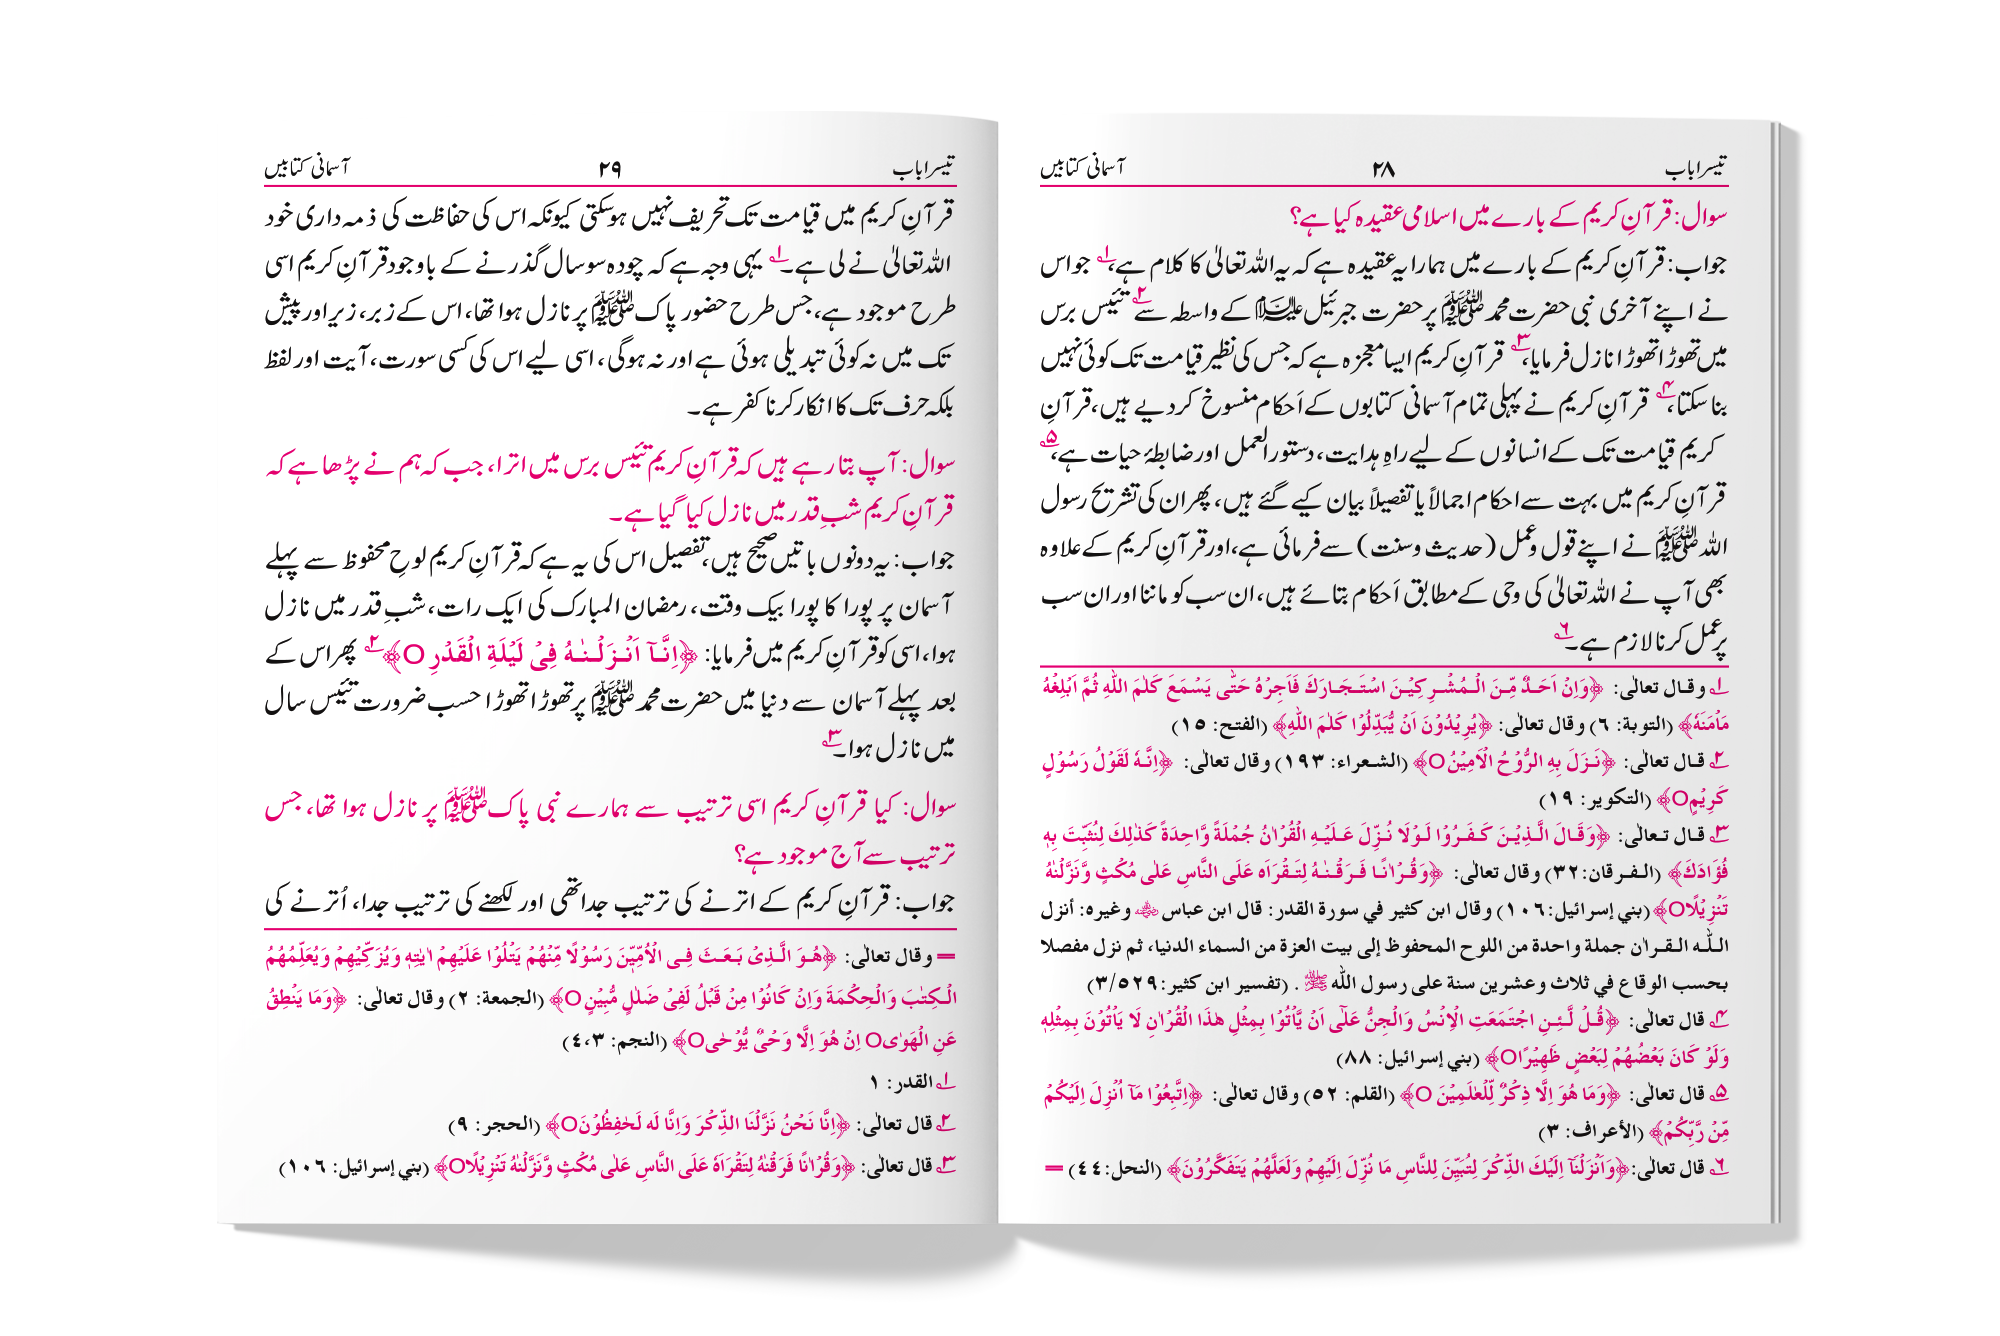 تیسرا باب ۲۸ آسمانی کتابیں
سوال: قرآنِ کریم کے بارے میں اسلامی عقیدہ کیا ہے؟
جواب: قرآنِ کریم کے بارے میں ہمارا یہ عقیدہ ہے کہ یہ اللہ تعالیٰ کا کلام ہے،۱ جو اس
نے اپنے آخری نبی حضرت محمد ﷺ پر حضرت جبرئیل علیہ السلام کے واسطہ سے۲ تئیس برس
میں تھوڑا تھوڑا نازل فرمایا،۳ قرآنِ کریم ایسا معجزہ ہے کہ جس کی نظیر قیامت تک کوئی نہیں
بنا سکتا،۴ قرآنِ کریم نے پہلی تمام آسمانی کتابوں کے اَحکام منسوخ کر دیے ہیں، قرآنِ
کریم قیامت تک کے انسانوں کے لیے راہِ ہدایت، دستور العمل اور ضابطۂ حیات ہے،۵
قرآنِ کریم میں بہت سے احکام اجمالاً یا تفصیلاً بیان کیے گئے ہیں، پھر ان کی تشریح رسول
اللہ ﷺ نے اپنے قول وعمل (حدیث وسنت) سے فرمائی ہے، اور قرآنِ کریم کے علاوہ
بھی آپ نے اللہ تعالیٰ کی وحی کے مطابق اَحکام بتائے ہیں، ان سب کو ماننا اور ان سب
پر عمل کرنا لازم ہے۔۶
۱ وقال تعالٰى: ﴿وَاِنْ اَحَدٌ مِّنَ الْمُشْرِكِيْنَ اسْتَجَارَكَ فَاَجِرْهُ حَتّٰى يَسْمَعَ كَلٰمَ اللّٰهِ ثُمَّ اَبْلِغْهُ
مَاْمَنَهٗ﴾ (التوبة: ٦) وقال تعالٰى: ﴿يُرِيْدُوْنَ اَنْ يُّبَدِّلُوْا كَلٰمَ اللّٰهِ﴾ (الفتح: ١٥)
۲ قال تعالٰى: ﴿نَزَلَ بِهِ الرُّوْحُ الْاَمِيْنُO﴾ (الشعراء: ١٩٣) وقال تعالٰى: ﴿اِنَّهٗ لَقَوْلُ رَسُوْلٍ
كَرِيْمٍO﴾ (التكوير: ١٩)
۳ قال تعالٰى: ﴿وَقَالَ الَّذِيْنَ كَفَرُوْا لَوْلَا نُزِّلَ عَلَيْهِ الْقُرْاٰنُ جُمْلَةً وَّاحِدَةً كَذٰلِكَ لِنُثَبِّتَ بِهٖ
فُؤَادَكَ﴾ (الفرقان:٣٢) وقال تعالٰى: ﴿وَقُرْاٰنًا فَرَقْنٰهُ لِتَقْرَاَه عَلَى النَّاسِ عَلٰى مُكْثٍ وَّنَزَّلْنٰهُ
تَنْزِيْلًاO﴾ (بني إسرائيل:١٠٦) وقال ابن كثير في سورة القدر: قال ابن عباس ؓ وغيره: أنزل
اللّٰه القرآن جملة واحدة من اللوح المحفوظ إلى بيت العزة من السماء الدنيا، ثم نزل مفصلا
بحسب الوقاع في ثلاث وعشرين سنة على رسول اللّٰه ﷺ . (تفسير ابن كثير:٣/٥٢٩)
۴ قال تعالٰى: ﴿قُلْ لَّئِنِ اجْتَمَعَتِ الْاِنْسُ وَالْجِنُّ عَلٰٓى اَنْ يَّاْتُوْا بِمِثْلِ هٰذَا الْقُرْاٰنِ لَا يَاْتُوْنَ بِمِثْلِهٖ
وَلَوْ كَانَ بَعْضُهُمْ لِبَعْضٍ ظَهِيْرًاO﴾ (بني إسرائيل: ٨٨)
۵ قال تعالٰى: ﴿وَمَا هُوَ اِلَّا ذِكْرٌ لِّلْعٰلَمِيْنَ O﴾ (القلم: ٥٢) وقال تعالٰى: ﴿اِتَّبِعُوْا مَآ اُنْزِلَ اِلَيْكُمْ
مِّنْ رَّبِّكُمْ﴾ (الأعراف: ٣)
۶ قال تعالٰى: ﴿وَاَنْزَلْنَآ اِلَيْكَ الذِّكْرَ لِتُبَيِّنَ لِلنَّاسِ مَا نُزِّلَ اِلَيْهِمْ وَلَعَلَّهُمْ يَتَفَكَّرُوْنَ﴾ (النحل:٤٤) =
تیسرا باب ۲۹ آسمانی کتابیں
قرآنِ کریم میں قیامت تک تحریف نہیں ہوسکتی کیونکہ اس کی حفاظت کی ذمہ داری خود
اللہ تعالیٰ نے لی ہے۔۱ یہی وجہ ہے کہ چودہ سو سال گذرنے کے باوجود قرآنِ کریم اسی
طرح موجود ہے، جس طرح حضور پاک ﷺ پر نازل ہوا تھا، اس کے زبر، زیر اور پیش
تک میں نہ کوئی تبدیلی ہوئی ہے اور نہ ہوگی، اسی لیے اس کی کسی سورت، آیت اور لفظ
بلکہ حرف تک کا انکار کرنا کفر ہے۔
سوال: آپ بتا رہے ہیں کہ قرآنِ کریم تئیس برس میں اترا، جب کہ ہم نے پڑھا ہے کہ
قرآنِ کریم شبِ قدر میں نازل کیا گیا ہے۔
جواب: یہ دونوں باتیں صحیح ہیں، تفصیل اس کی یہ ہے کہ قرآنِ کریم لوحِ محفوظ سے پہلے
آسمان پر پورا کا پورا بیک وقت، رمضان المبارک کی ایک رات، شبِ قدر میں نازل
ہوا، اسی کو قرآنِ کریم میں فرمایا: ﴿اِنَّآ اَنْزَلْنٰهُ فِىْ لَيْلَةِ الْقَدْرِ O﴾۲ پھر اس کے
بعد پہلے آسمان سے دنیا میں حضرت محمد ﷺ پر تھوڑا تھوڑا حسب ضرورت تئیس سال
میں نازل ہوا۔۳
سوال: کیا قرآنِ کریم اسی ترتیب سے ہمارے نبی پاک ﷺ پر نازل ہوا تھا، جس
ترتیب سے آج موجود ہے؟
جواب: قرآنِ کریم کے اترنے کی ترتیب جدا تھی اور لکھنے کی ترتیب جدا، اُترنے کی
= وقال تعالٰى: ﴿هُوَ الَّذِىْ بَعَثَ فِى الْاُمِّيّٖنَ رَسُوْلًا مِّنْهُمْ يَتْلُوْا عَلَيْهِمْ اٰيٰتِهٖ وَيُزَكِّيْهِمْ وَيُعَلِّمُهُمُ
الْكِتٰبَ وَالْحِكْمَةَ وَاِنْ كَانُوْا مِنْ قَبْلُ لَفِىْ ضَلٰلٍ مُّبِيْنٍO﴾ (الجمعة: ٢) وقال تعالٰى: ﴿وَمَا يَنْطِقُ
عَنِ الْهَوٰىO اِنْ هُوَ اِلَّا وَحْىٌ يُّوْحٰىO﴾ (النجم: ٣،٤)
۱ القدر: ١
۲ قال تعالٰى: ﴿اِنَّا نَحْنُ نَزَّلْنَا الذِّكْرَ وَاِنَّا لَه لَحٰفِظُوْنَO﴾ (الحجر: ٩)
۳ قال تعالٰى: ﴿وَقُرْاٰنًا فَرَقْنٰهُ لِتَقْرَاَهٗ عَلَى النَّاسِ عَلٰى مُكْثٍ وَّنَزَّلْنٰهُ تَنْزِيْلًاO﴾ (بني إسرائيل: ١٠٦)